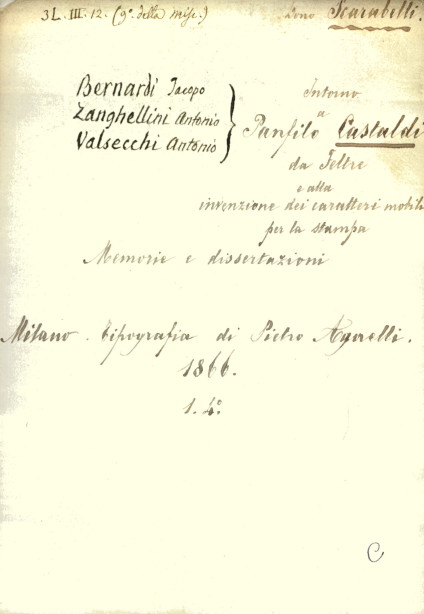 3L. III. 12. (9°. della misc.) Dono Scarabelli.
Bernardi Jacopo
Zanghellini Antonio
Valsecchi Antonio
Intorno
a
Panfilo Castaldi
da Feltre
e alla
invenzione dei caratteri mobili
per la stampa
Memorie e dissertazioni
Milano. Tipografia di Pietro Agnelli.
1866.
1. 4°.
C